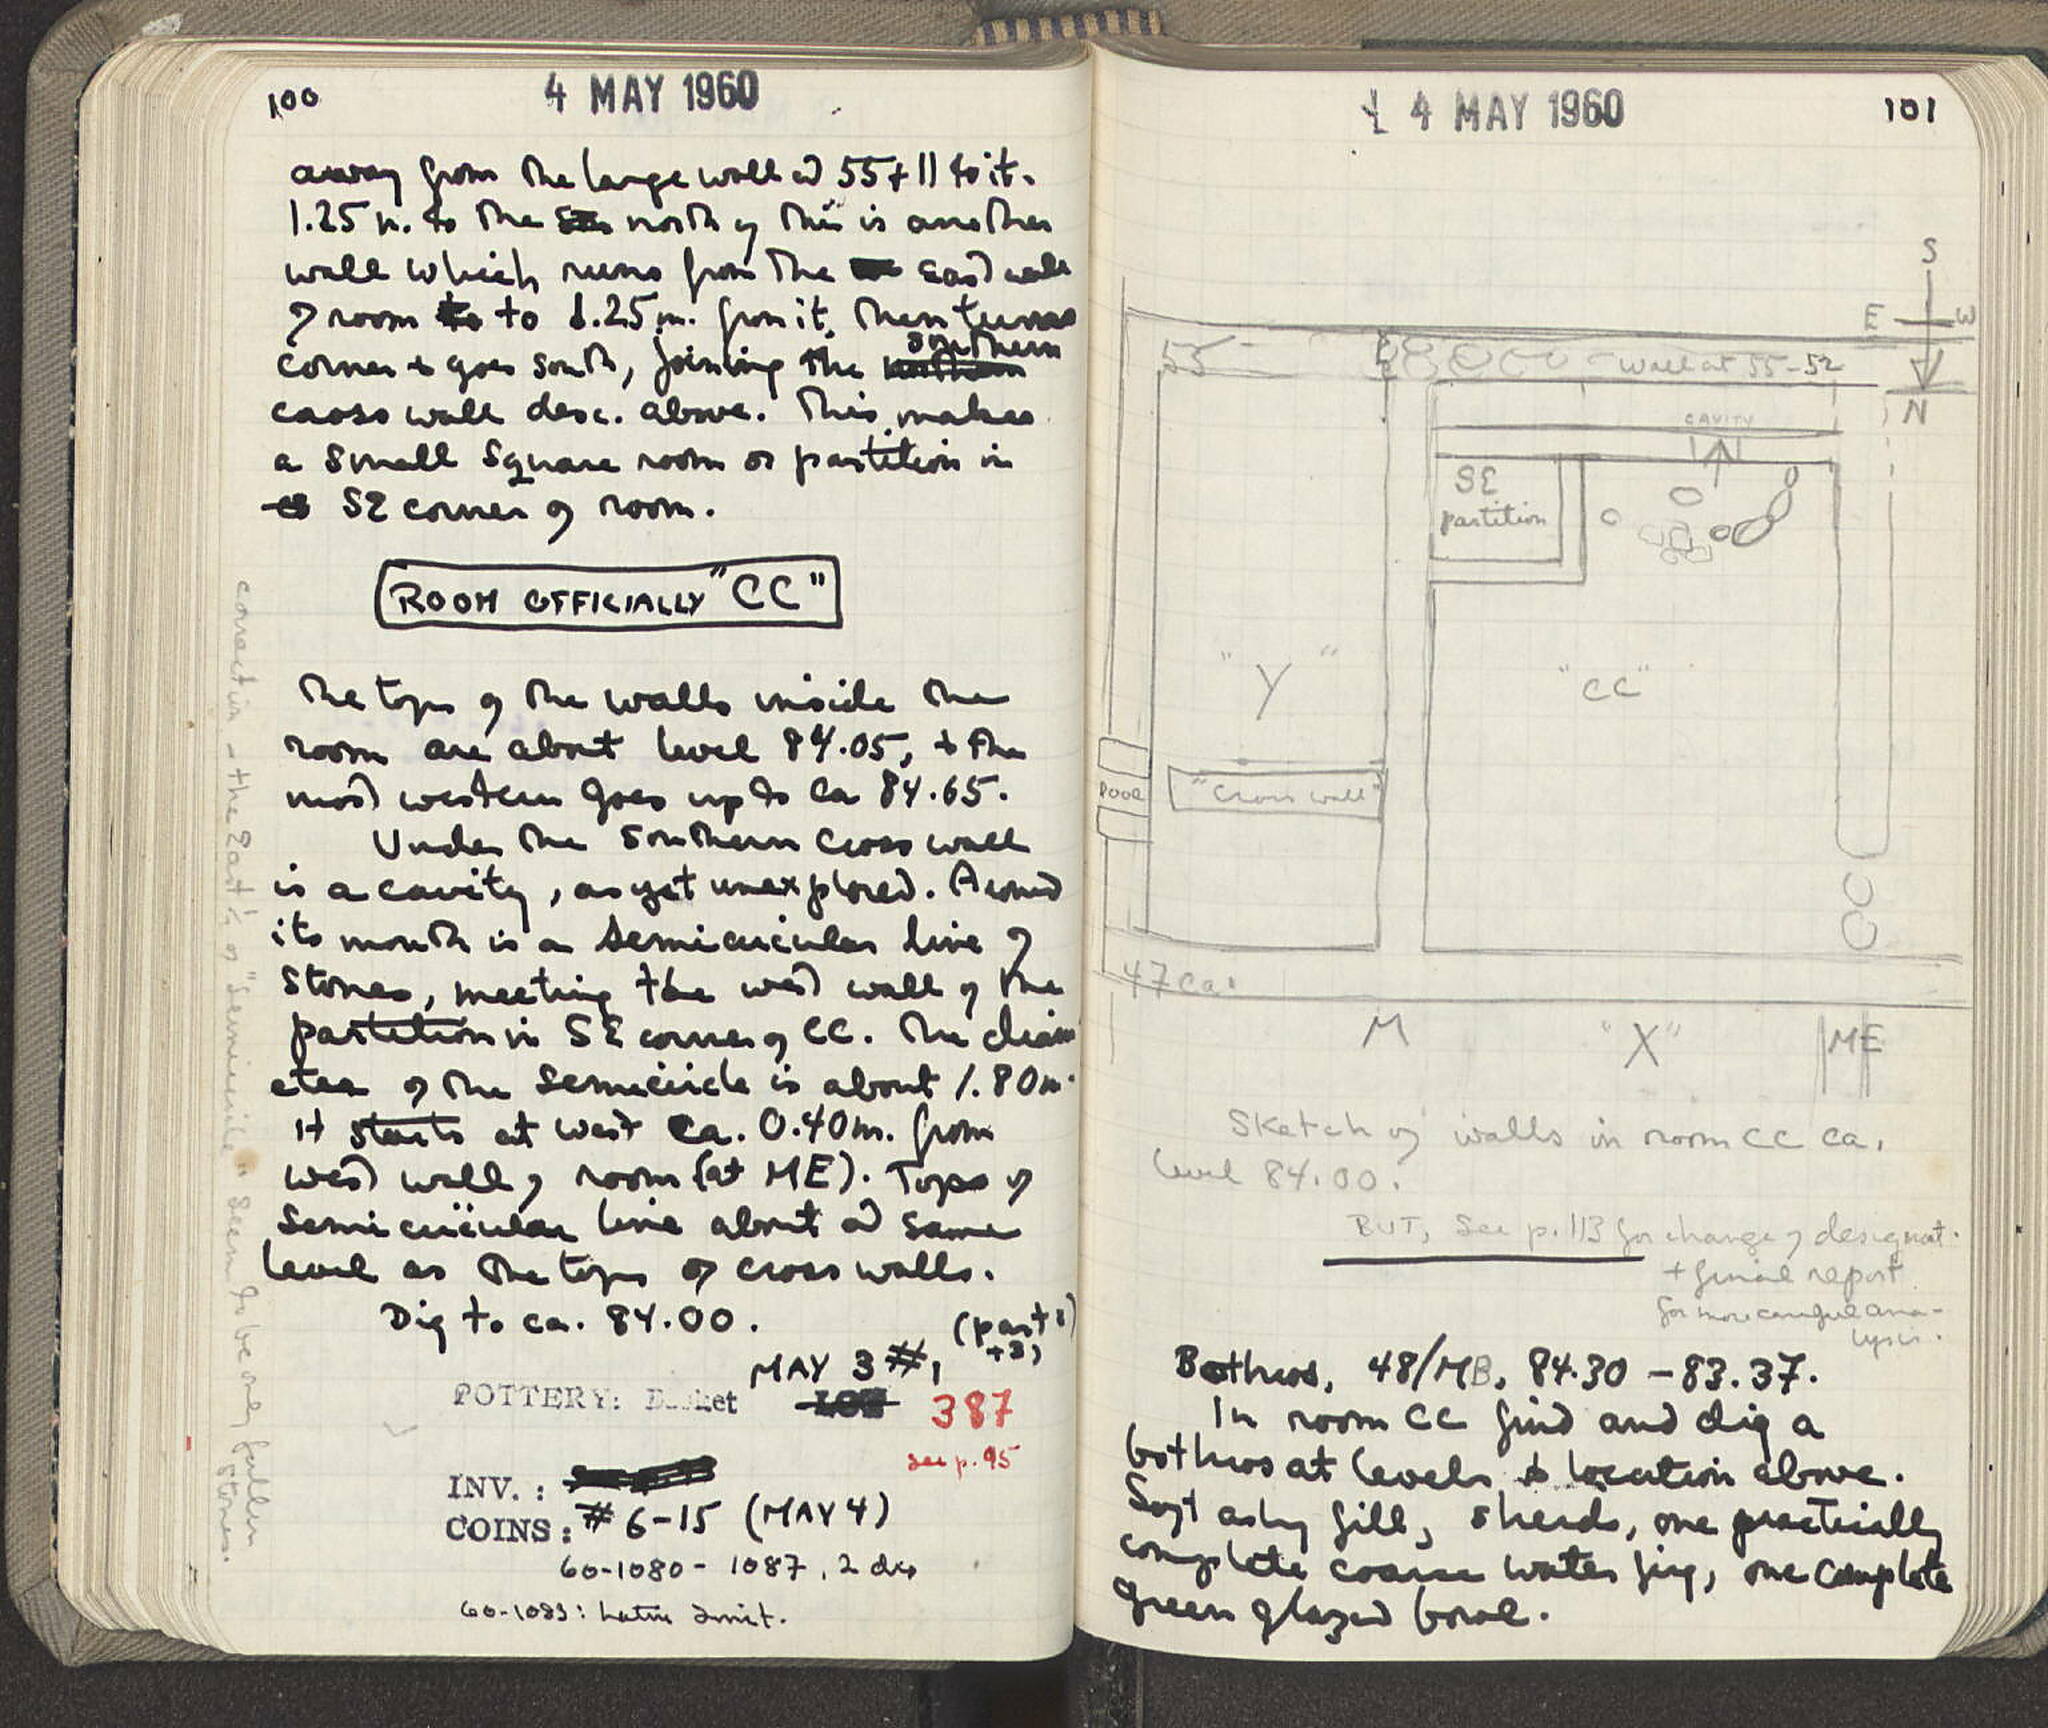 100
4 MAY 1960
away from the large wall at 55 + || to it.
1.25 m. to the north of this is another
wall which runs from the East wall
of room to 1.25 m. from it, then turns
corner + goes south, joining the southern
cross wall desc. above. This makes
a small square room or partition in
SE corner of room.
ROOM OFFICIALLY "CC"
The tops of the walls inside the
room are about level 84.05, + the
most western goes up to ca 84.65.
Under the southern cross wall
is a cavity, as yet unexplored. Around
its mouth is a semicircular line of
stones, meeting the west wall of the
partition in SE corner of CC. The diam
eter of the semicircle is about 1.80 m.
It starts at west ca. 0.40 m. from
west wall of room (at ME). Tops of
semicircular line about at same
level as the tops of cross walls.
Dig to ca. 84.00.
(part 1
+3)
MAY 3 #1
POTTERY: Basket LOT 387
see p. 95
INV.:
COINS: #6-15 (MAY 4)
60-1080 - 1087, 2 dis
60-1083: Latin Imit.
correction - the East ½ of "semicircle" seem to be only fallen
stones.
4 MAY 1960
101
S
E W
N
55
wall at 55-52
CAVITY
SE
partition
"Y"
"CC"
Door
"Cross wall"
47 ca.
M
"X"
ME
Sketch of walls in room CC ca.
level 84.00.
BUT, see p. 113 for change of designat.
+ final report
for more careful ana-
lysis.
Bothros, 48/MB, 84.30 - 83.37.
In room CC find and dig a
bothros at levels & location above.
Soft ashy fill, sherds, one practically
complete coarse water jug, one complete
green glazed bowl.